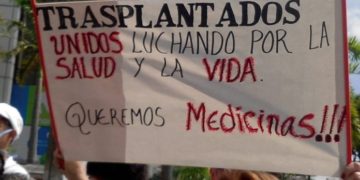 TRASPLANTADOS
UNIDOS LUCHANDO POR LA
SALUD Y LA VIDA.
QUEREMOS Medicinas!!!